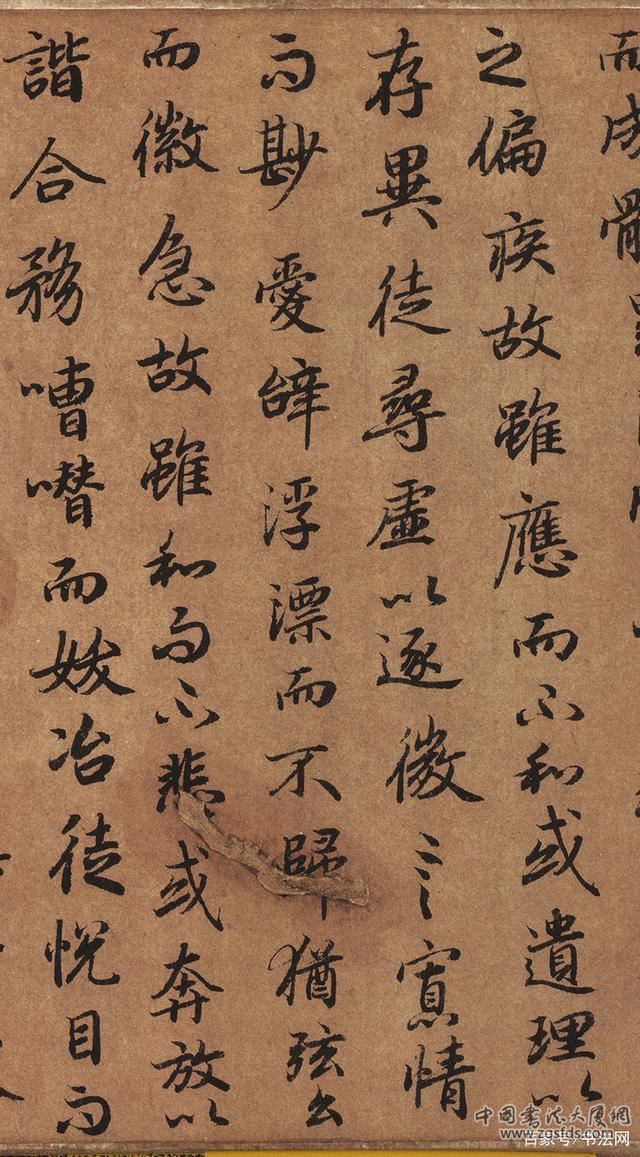 而成體
之偏疾故雖應而不和或遺理以
存異徒尋虛以逐微言寡情
而尠愛辭浮漂而不歸猶弦么
而徽急故雖和而不悲或奔放以
諧合務嘈噆而妖冶徒悅目而
中國書法大厦網
www.zgsfds.com
百家号/书法网